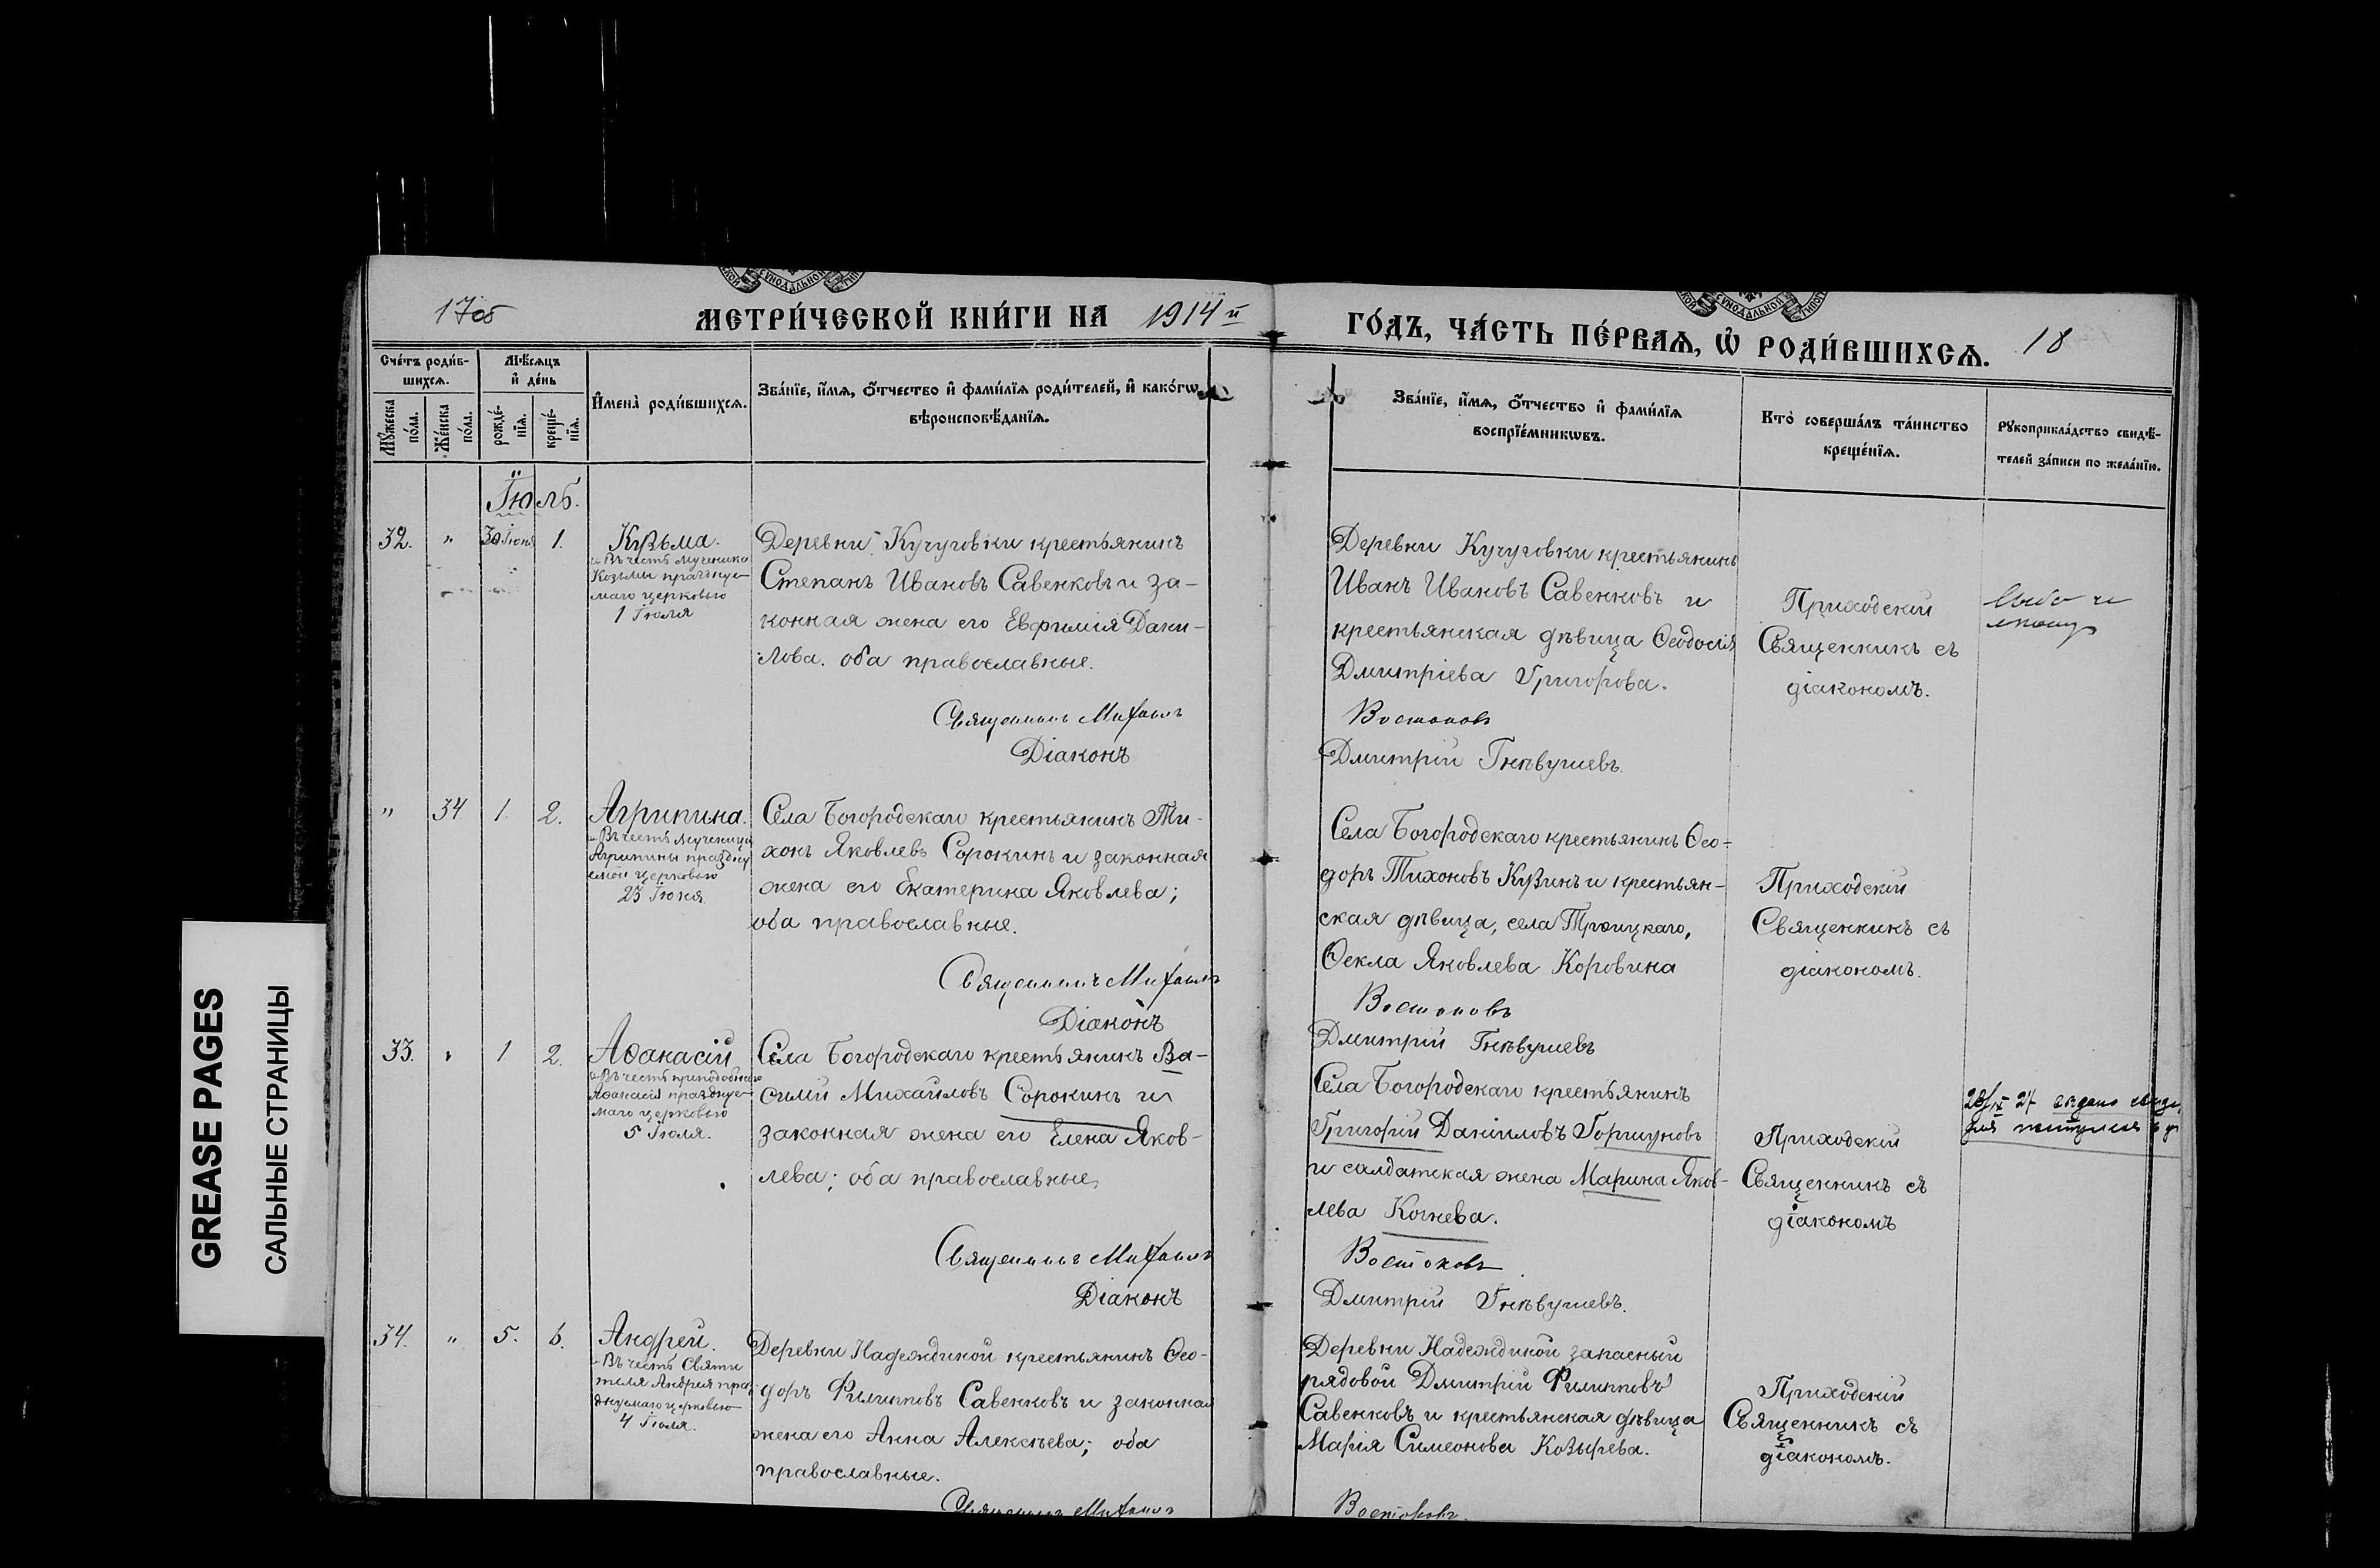 GREASE PAGES
САЛЬНЫЕ СТРАНИЦЫ
17об
МЕТРИ́ЧЕСКОЙ КНИ́ГИ НА 1914й
ГО́ДЪ, ЧА́СТЬ ПЕ́РВАѦ, Ѽ РОДИ́ВШИХСѦ.
18
Сче́тъ роди́в-
шихсѧ.
Мѣ́сѧцъ
и҆ де́нь
Мꙋ́жеска
по́ла.
Же́нска
по́ла.
рожде́-
нїѧ.
креще́-
нїѧ.
И҆мена̀ роди́вшихсѧ.
Зва́нїе, и҆́мѧ, ѻ҆́тчество и҆ фами́лїѧ роди́телей, и҆ како́гѡ
вѣроисповѣ́данїѧ.
Зва́нїе, и҆́мѧ, ѻ҆́тчество и҆ фами́лїѧ
воспрїе́мникѡвъ.
Кто̀ соверша́лъ та́инство
креще́нїѧ.
Рꙋкоприкла́дство свидѣ́-
телей за́писи по жела́нїю.
Іюль.
32. " 30 Іюня 1.
Кузьма.
Въ честь мученика
Козьмы празднуе-
маго церковью
1 Іюля
Деревни Кучуговки крестьянинъ
Степанъ Ивановъ Савенковъ и за-
конная жена его Евфимія Дани-
лова. оба православные.
Священникъ Михаилъ
Діаконъ
Деревни Кучуговки крестьянинъ
Иванъ Ивановъ Савенковъ и
крестьянская дѣвица Ѳеодосія
Дмитріева Григорова.
Востоковъ
Дмитрій Гнѣвушевъ.
Приходскій
Священникъ съ
діакономъ.
" 34 1. 2.
Агрипина.
Въ честь Мученицы
Агрипины праздну
емой церковью
23 Іюня
Села Богородскаго крестьянинъ Ти-
хонъ Яковлевъ Сорокинъ и законная
жена его Екатерина Яковлева;
оба православные.
Священникъ Михаилъ
Діаконъ
Села Богородскаго крестьянинъ Ѳео-
доръ Тихоновъ Кузинъ и крестьян-
ская дѣвица, села Троицкаго,
Ѳекла Яковлева Коровина
Востоковъ
Дмитрій Гнѣвушевъ
Приходскій
Священникъ съ
діакономъ.
33. " 1 2.
Аѳанасій
Въ честь преподобнаго
Аѳанасія празднуе-
маго церковью
5 Іюля.
Села Богородскаго крестьянинъ Ва-
силій Михайловъ Сорокинъ и
законная жена его Елена Яков-
лева; оба православные,
Священникъ Михаилъ
Діаконъ
Села Богородскаго крестьянинъ
Григорій Даніиловъ Горшуновъ
и салдатская жена Марина Яков-
лева Когнева.
Востоковъ
Дмитрій Гнѣвушевъ.
Приходскій
Священникъ съ
діакономъ
34. " 5. 6.
Андрей.
Въ честь Святи
теля Андрея пра-
зднуемаго церковью
4 Іюля.
Деревни Надеждиной крестьянинъ Ѳео-
доръ Филипповъ Савенковъ и законная
жена его Анна Алексѣева; оба
православные.
Священникъ Михаилъ
Деревни Надеждиной запасный
рядовой Дмитрій Филипповъ
Савенковъ и крестьянская дѣвица
Марія Симеонова Козырева.
Востоковъ.
Приходскій
Священникъ съ
діакономъ.